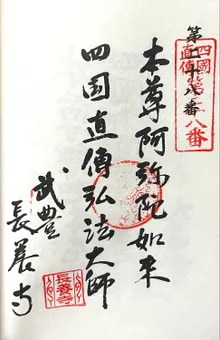 第二十八番
四國直傳第二十八番
本尊阿弥陀如来
四国直傳弘法大師
武豊
長養寺
長養寺